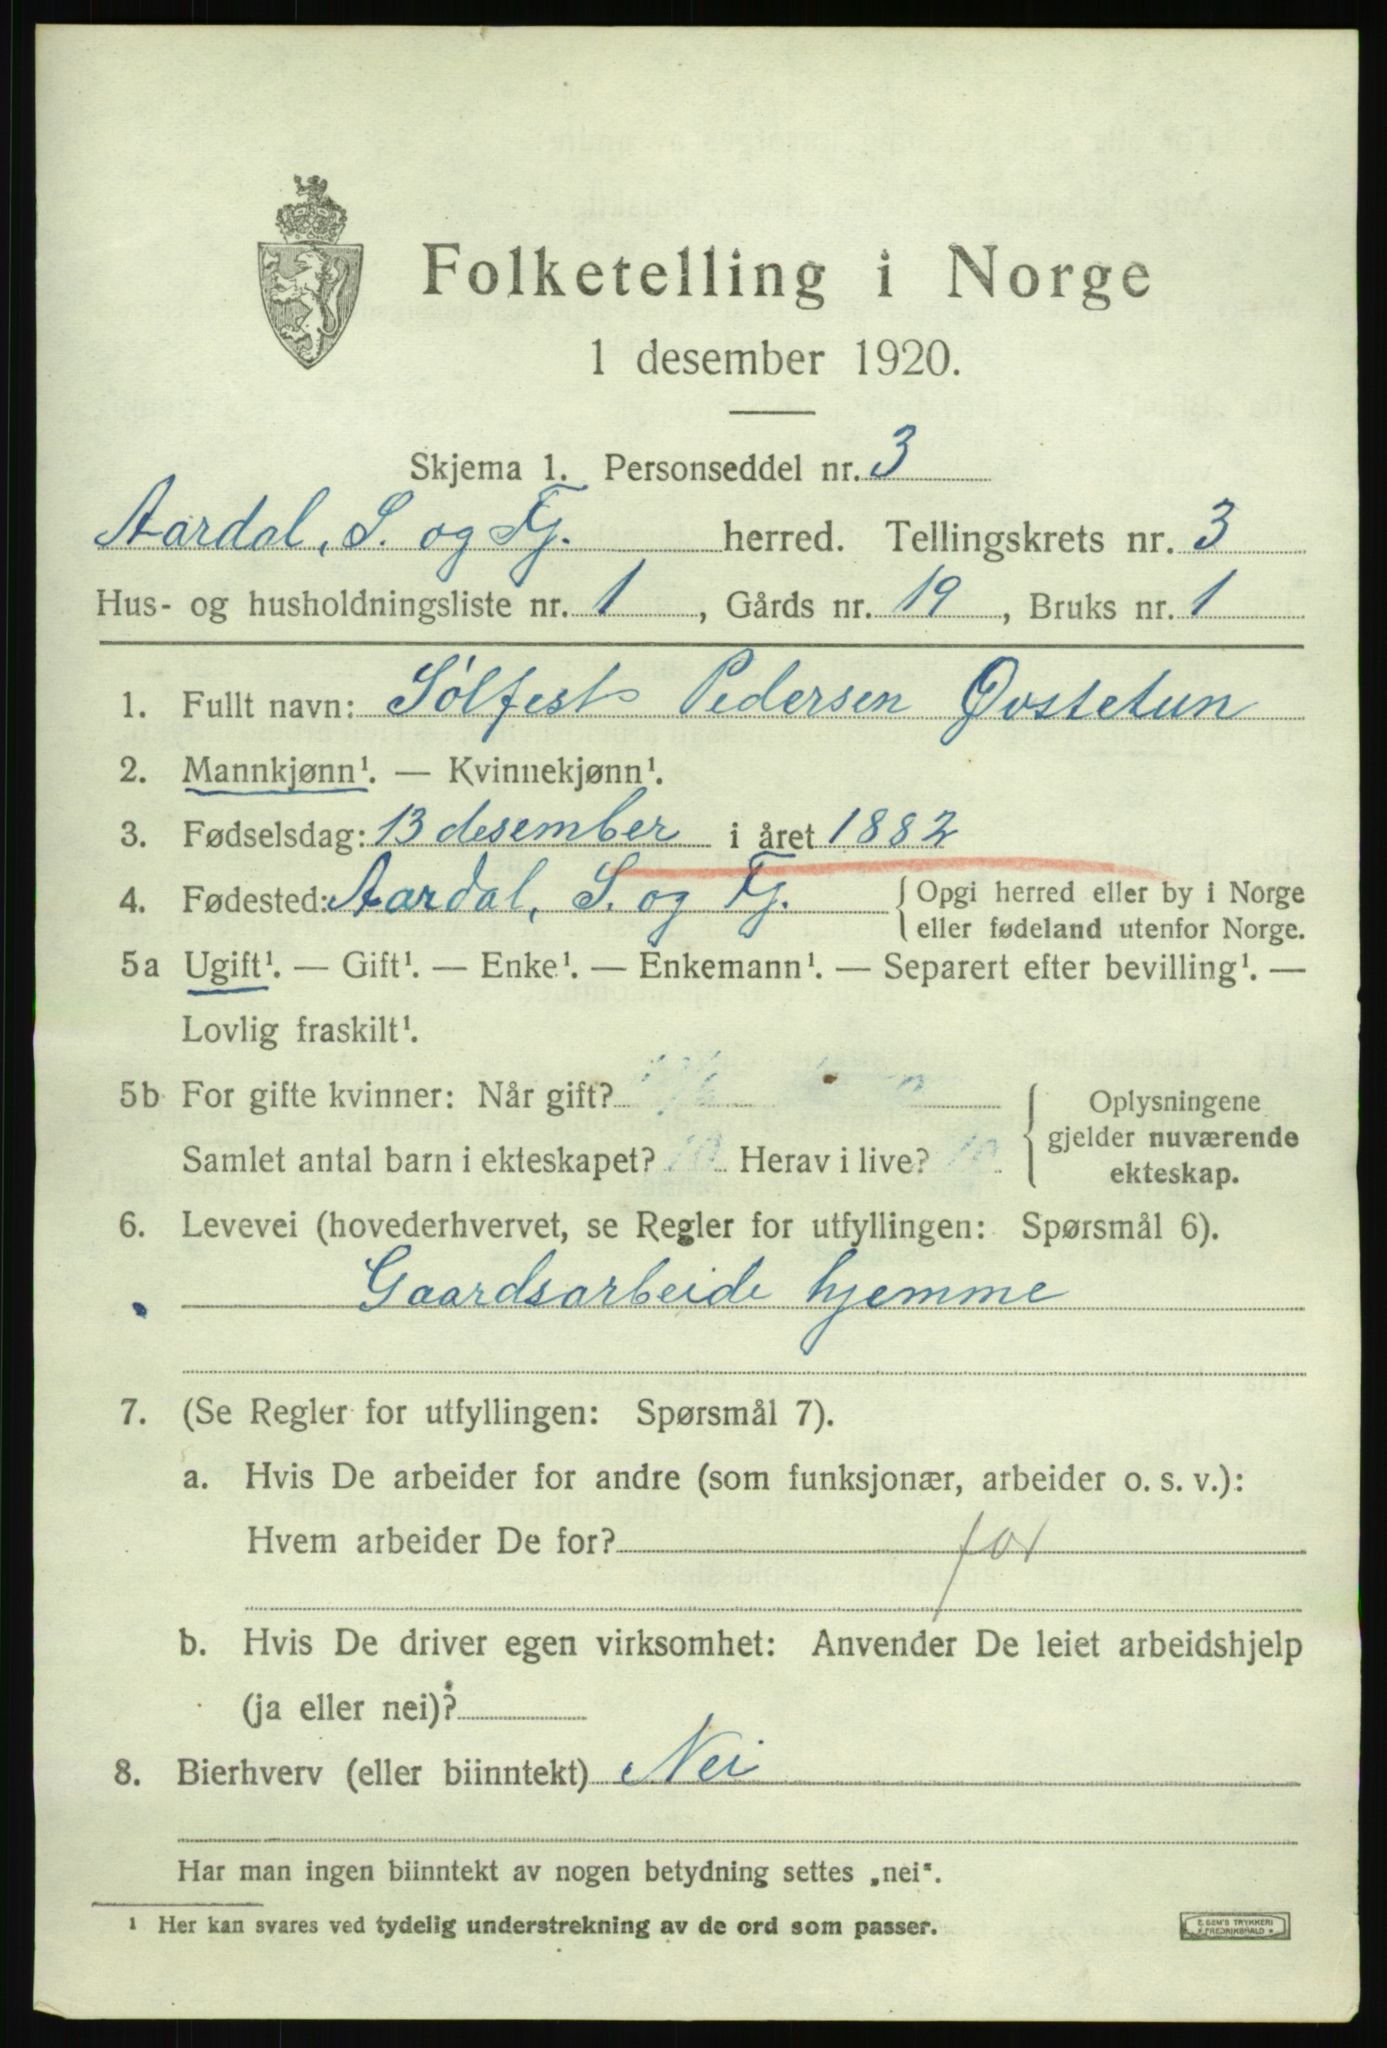 Folketelling i Norge
1 desember 1920.
Skjema 1. Personseddel nr. 3
Aardal, S. og Fj. herred. Tellingskrets nr. 3
Hus- og husholdningsliste nr. 1, Gårds nr. 19, Bruks nr. 1
1. Fullt navn: Sølfest Pedersen Øvstetun
2. Mannkjønn¹. — Kvinnekjønn¹.
3. Fødselsdag: 13 desember i året 1882
4. Fødested: Aardal, S. og Fj. { Opgi herred eller by i Norge
eller fødeland utenfor Norge.
5a Ugift¹. — Gift¹. — Enke¹. — Enkemann¹. — Separert efter bevilling¹. —
Lovlig fraskilt¹.
5b For gifte kvinner: Når gift?
Samlet antal barn i ekteskapet? 10 Herav i live? 10
{ Oplysningene
gjelder nuværende
ekteskap.
6. Levevei (hovederhvervet, se Regler for utfyllingen: Spørsmål 6).
Gaardsarbeide hjemme
7. (Se Regler for utfyllingen: Spørsmål 7).
a. Hvis De arbeider for andre (som funksjonær, arbeider o. s. v.):
Hvem arbeider De for? for
b. Hvis De driver egen virksomhet: Anvender De leiet arbeidshjelp
(ja eller nei)?
8. Bierhverv (eller biinntekt) Nei
Har man ingen biinntekt av nogen betydning settes „nei“.
¹ Her kan svares ved tydelig understrekning av de ord som passer.
E. SEM'S TRYKKERI
* FREDRIKSHALD *